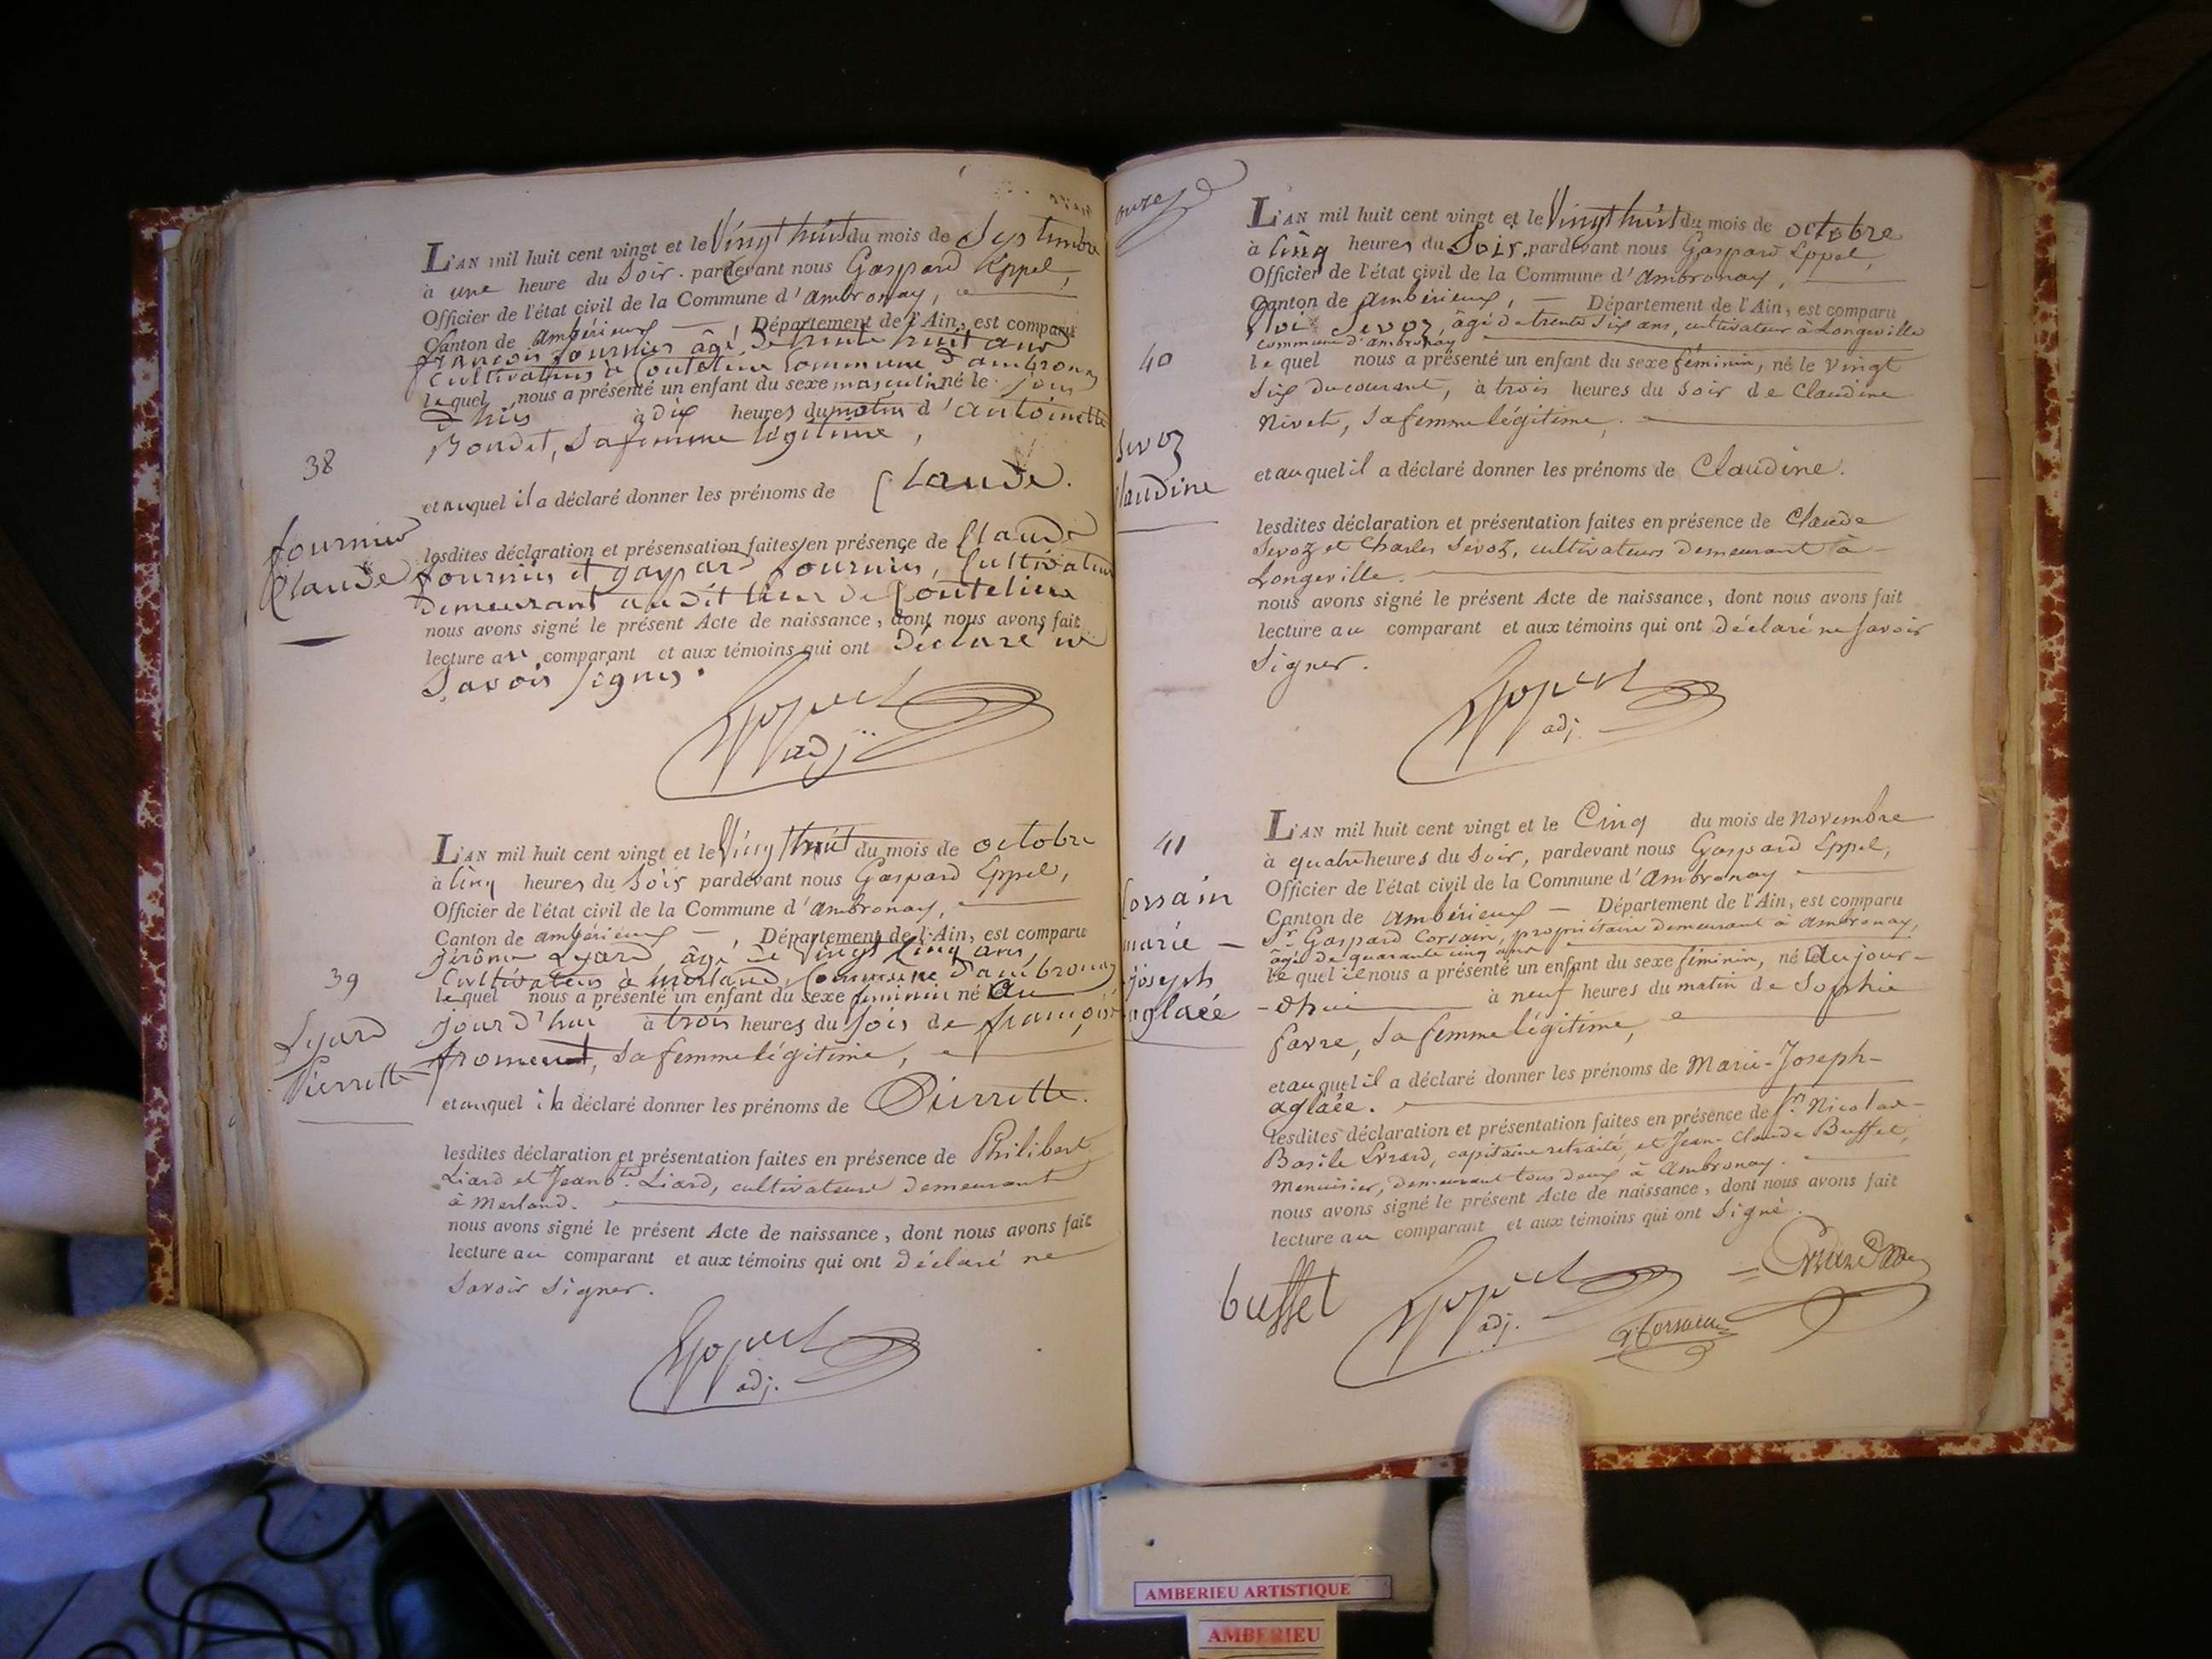 L'AN mil huit cent vingt et le Vingt huit du mois de Septembre
à une heure du Soir. pardevant nous Gaspard Eppel,
Officier de l'état civil de la Commune d'ambronay,
Canton de ambérieux — Département de l'Ain, est comparu
françois fournier âgé de trente huit ans
Cultivateur à Coutelieu Commune d'ambronay
lequel nous a présenté un enfant du sexe masculin né le jour
d'hier à dix heures du matin d'antoinette
Bondet, Sa femme légitime,
38
et auquel il a déclaré donner les prénoms de Claude.
fournier
Claude
lesdites déclaration et présensation faites en présence de Claude
fournier et gaspard fournier, Cultivateurs
demeurant au dit lieu de Coutelieu
nous avons signé le présent Acte de naissance, dont nous avons fait
lecture au comparant et aux témoins qui ont Déclaré ne
Savoir Signer.
Eppel
adj.
L'AN mil huit cent vingt et le Vingt huit du mois de octobre
à Cinq heures du Soir pardevant nous Gaspard Eppel,
Officier de l'état civil de la Commune d'ambronay,
Canton de ambérieux —, Département de l'Ain, est comparu
jérôme Lyard âgé de Vingt Cinq ans,
Cultivateur à merland, Commune d'ambronay
39
lequel nous a présenté un enfant du sexe feminin né au
jourd'hui à trois heures du Soir de françoise
froment, Sa femme légitime,
Lyard
Pierrette
et auquel il a déclaré donner les prénoms de Pierrette.
lesdites déclaration et présentation faites en présence de Philibert
Liard et Jean Bte. Liard, cultivateurs demeurant
à Merland.
nous avons signé le présent Acte de naissance, dont nous avons fait
lecture au comparant et aux témoins qui ont déclaré ne
Savoir Signer.
Eppel
adj.
onze
L'AN mil huit cent vingt et le Vingt huit du mois de octobre
à Cinq heures du Soir. pardevant nous Gaspard Eppel,
Officier de l'état civil de la Commune d'ambronay,
Canton de ambérieux, — Département de l'Ain, est comparu
Sevoz, âgé de trente Six ans, cultivateur à Longeville
commune d'ambronay
40
lequel nous a présenté un enfant du sexe féminin, né le vingt
Six du courant, à trois heures du Soir de Claudine
Nivet, Sa femme légitime.
Sevoz
Claudine
et auquel il a déclaré donner les prénoms de Claudine.
lesdites déclaration et présentation faites en présence de Claude
Sevoz et Charles Sevoz, cultivateurs demeurant à
Longeville.
nous avons signé le présent Acte de naissance, dont nous avons fait
lecture au comparant et aux témoins qui ont déclaré ne Savoir
Signer.
Eppel
adj.
L'AN mil huit cent vingt et le Cinq du mois de Novembre
à quatre heures du Soir, pardevant nous Gaspard Eppel,
Officier de l'état civil de la Commune d'ambronay
Canton de ambérieux — Département de l'Ain, est comparu
Sr. Gaspard Corsain, propriétaire demeurant à ambronay,
âgé de quarante cinq ans
41
Corsain
marie —
joseph
aglaée
lequel il nous a présenté un enfant du sexe féminin, né Aujour-
-d'hui à neuf heures du matin de Sophie
favre, Sa femme légitime,
et auquel il a déclaré donner les prénoms de Marie-Joseph-
aglaée.
lesdites déclaration et présentation faites en présence de Srs. Nicolas-
Basile capitaine retraité, et Jean-Claude Buffet,
Menuisier, demeurant tous deux à Ambronay.
nous avons signé le présent Acte de naissance, dont nous avons fait
lecture au comparant et aux témoins qui ont Signé.
buffet
Eppel
adj.
Corsain
AMBERIEU ARTISTIQUE
AMBERIEU